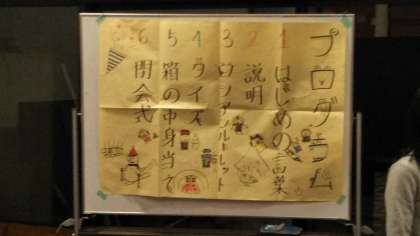 プログラム
1 はじめの言葉
2 説明
3 ロシアンルーレット
4 クイズ
5 箱の中身当て
6 閉会式